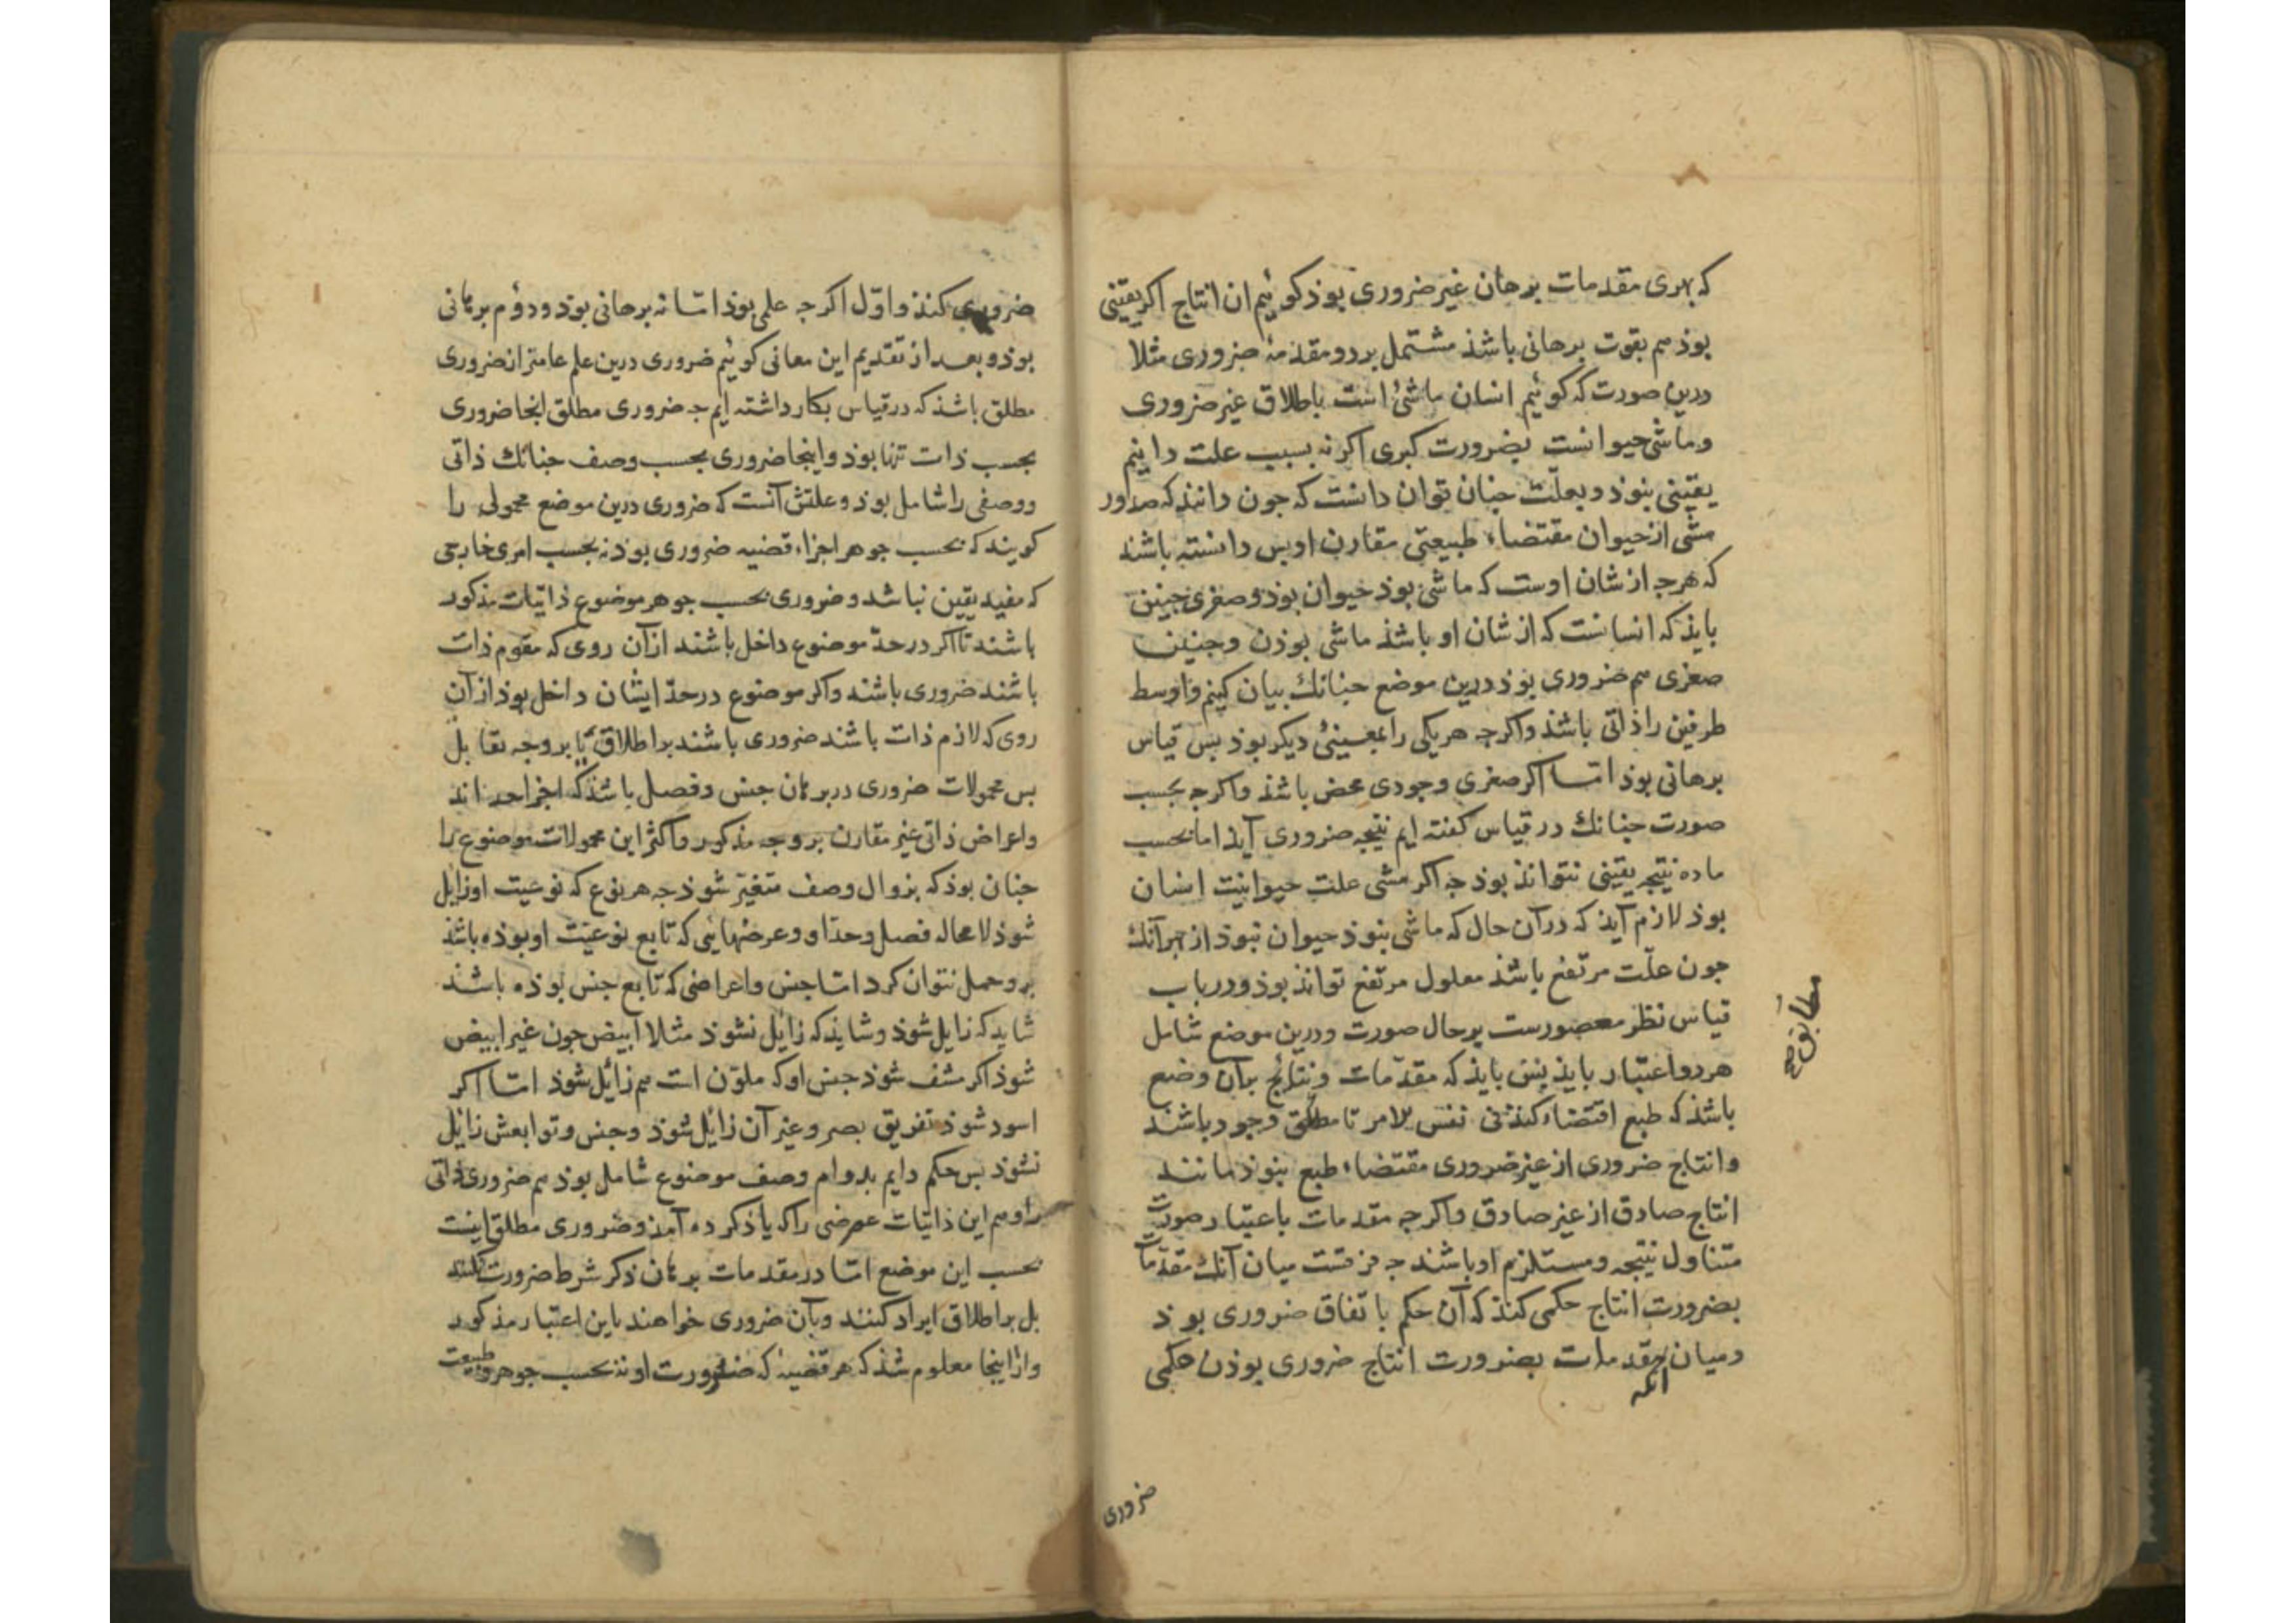 که بهری مقدمات برهان غیر ضروری بوذ کوئیم ان انتاج اکر یقینی
بوذ هم بقوت برهانی باشذ مشتمل بر دو مقدمهٔ ضروری مثلا
درین صورت که کوئیم انسان ماشئ است باطلاق غیر ضروری
و ماشی حیوانست بضرورت کبری اکر نه بسبب علت دانیم
یقینی نبوذ و بعلّت جنان توان دانست که جون دانند که صدور
مشی از حیوان مقتضاء طبیعتی مقارن اوس دانسته باشند
که هرجه از شان اوست که ماشی بوذ حیوان بوذ و صغری جنین
بایذ که انسانست که از شان او باشذ ماشی بوذن و جنین
صغری هم ضروری بوذ درین موضع جنانك بیان کنیم و اوسط
طرفین را ذاتی باشذ و اکرجه هر یکی را بمعینئ دیکر بوذ بس قیاس
برهانی بوذ امّا اکر صغری وجودی محض باشذ و اکرجه بحسب
صورت جنانك در قیاس کفته ایم نتیجه ضروری آیذ اما بحسب
ماده نتیجه یقینی نتوانذ بوذ جه اکر مشی علت حیوانیت انسان
بوذ لازم آیذ که در آن حال که ماشی نبوذ حیوان نبوذ از بهر آنك
جون علّت مرتفع باشذ معلول مرتفع تواند بوذ و در باب
قیاس نظر مقصورست بر حال صورت و درین موضع شامل
هر دو اعتبار بایذ بس بایذ که مقدّمات و نتائج بران وضع
باشذ که طبع اقتضاء کند فی نفس الامر تا مطابق وجود باشند
و انتاج ضروری از غیر ضروری مقتضاء طبع نبوذ مانند
انتاج صادق از غیر صادق و اکرجه مقدمات باعتبار صورت
متناول نتیجه و مستلزم او باشند جه فرقست میان آنك مقدّمات
بضرورت انتاج حکمی کنذ که آن حکم باتفاق ضروری بوذ
و میان آنکه مقدمات بضرورت انتاج ضروری بوذن حکمی
مطابق صح
ضروری
ضروری کنذ و اوّل اکرجه علمی بوذ امّا نه برهانی بوذ و دوّم برهانی
بوذ و بعد از تقدیم این معانی کوئیم ضروری درین علم عامتر از ضروری
مطلق باشذ که در قیاس بکار داشته ایم جه ضروری مطلق انجا ضروری
بحسب ذات تنها بوذ و اینجا ضروری بحسب وصف جنانك ذاتی
و وصفی را شامل بوذ و علتش آنست که ضروری درین موضع محمولی را
کویند که بحسب جوهر اجزاء قضیه ضروری بوذ نه بحسب امری خارجی
که مفید یقین نباشد و ضروری بحسب جوهر موضوع ذاتیات مذکور
باشند تا اکر در حدّ موضوع داخل باشند از آن روی که مقوم ذات
باشند ضروری باشند و اکر موضوع در حدّ ایشان داخل بوذ از آن
روی که لازم ذات باشند ضروری باشند بر اطلاق یا بر وجه تقابل
بس محمولات ضروری در برهان جنس و فصل باشذ که اجزا حد اند
و اعراض ذاتی غیر مقارن بر وجه مذکور و اکثر این محمولات موضوع را
جنان بوذ که بزوال وصف متغیّر شوذ جه هر نوع که نوعیت او زایل
شوذ لا محاله فصل و حدّ او و عرضهایی که تابع نوعیّت او بوذه باشذ
برو حمل نتوان کرد امّا جنس و اعراضی که تابع جنس بوذه باشند
شاید که زایل شوذ و شایذ که زایل نشوذ مثلا ابیض جون غیر ابیض
شوذ اکر مشف شوذ جنس او که ملوّن است هم زائل شوذ امّا اکر
اسود شوذ تفریق بصر و غیر آن زائل شوذ و جنس و توابعش زایل
نشوذ بس حکم دایم بدوام وصف موضوع شامل بوذ هم ضروری ذاتی
را و هم این ذاتیات عرضی را که یاذ کرده آمذ و ضروری مطلق اینست
بحسب این موضع امّا در مقدمات برهان ذکر شرط ضرورت نکنند
بل بر اطلاق ایراد کنند و بآن ضروری خواهند باین اعتبار مذکور
و از اینجا معلوم شذ که هر قضیه که ضرورت او نه بحسب جوهر و طبیعت